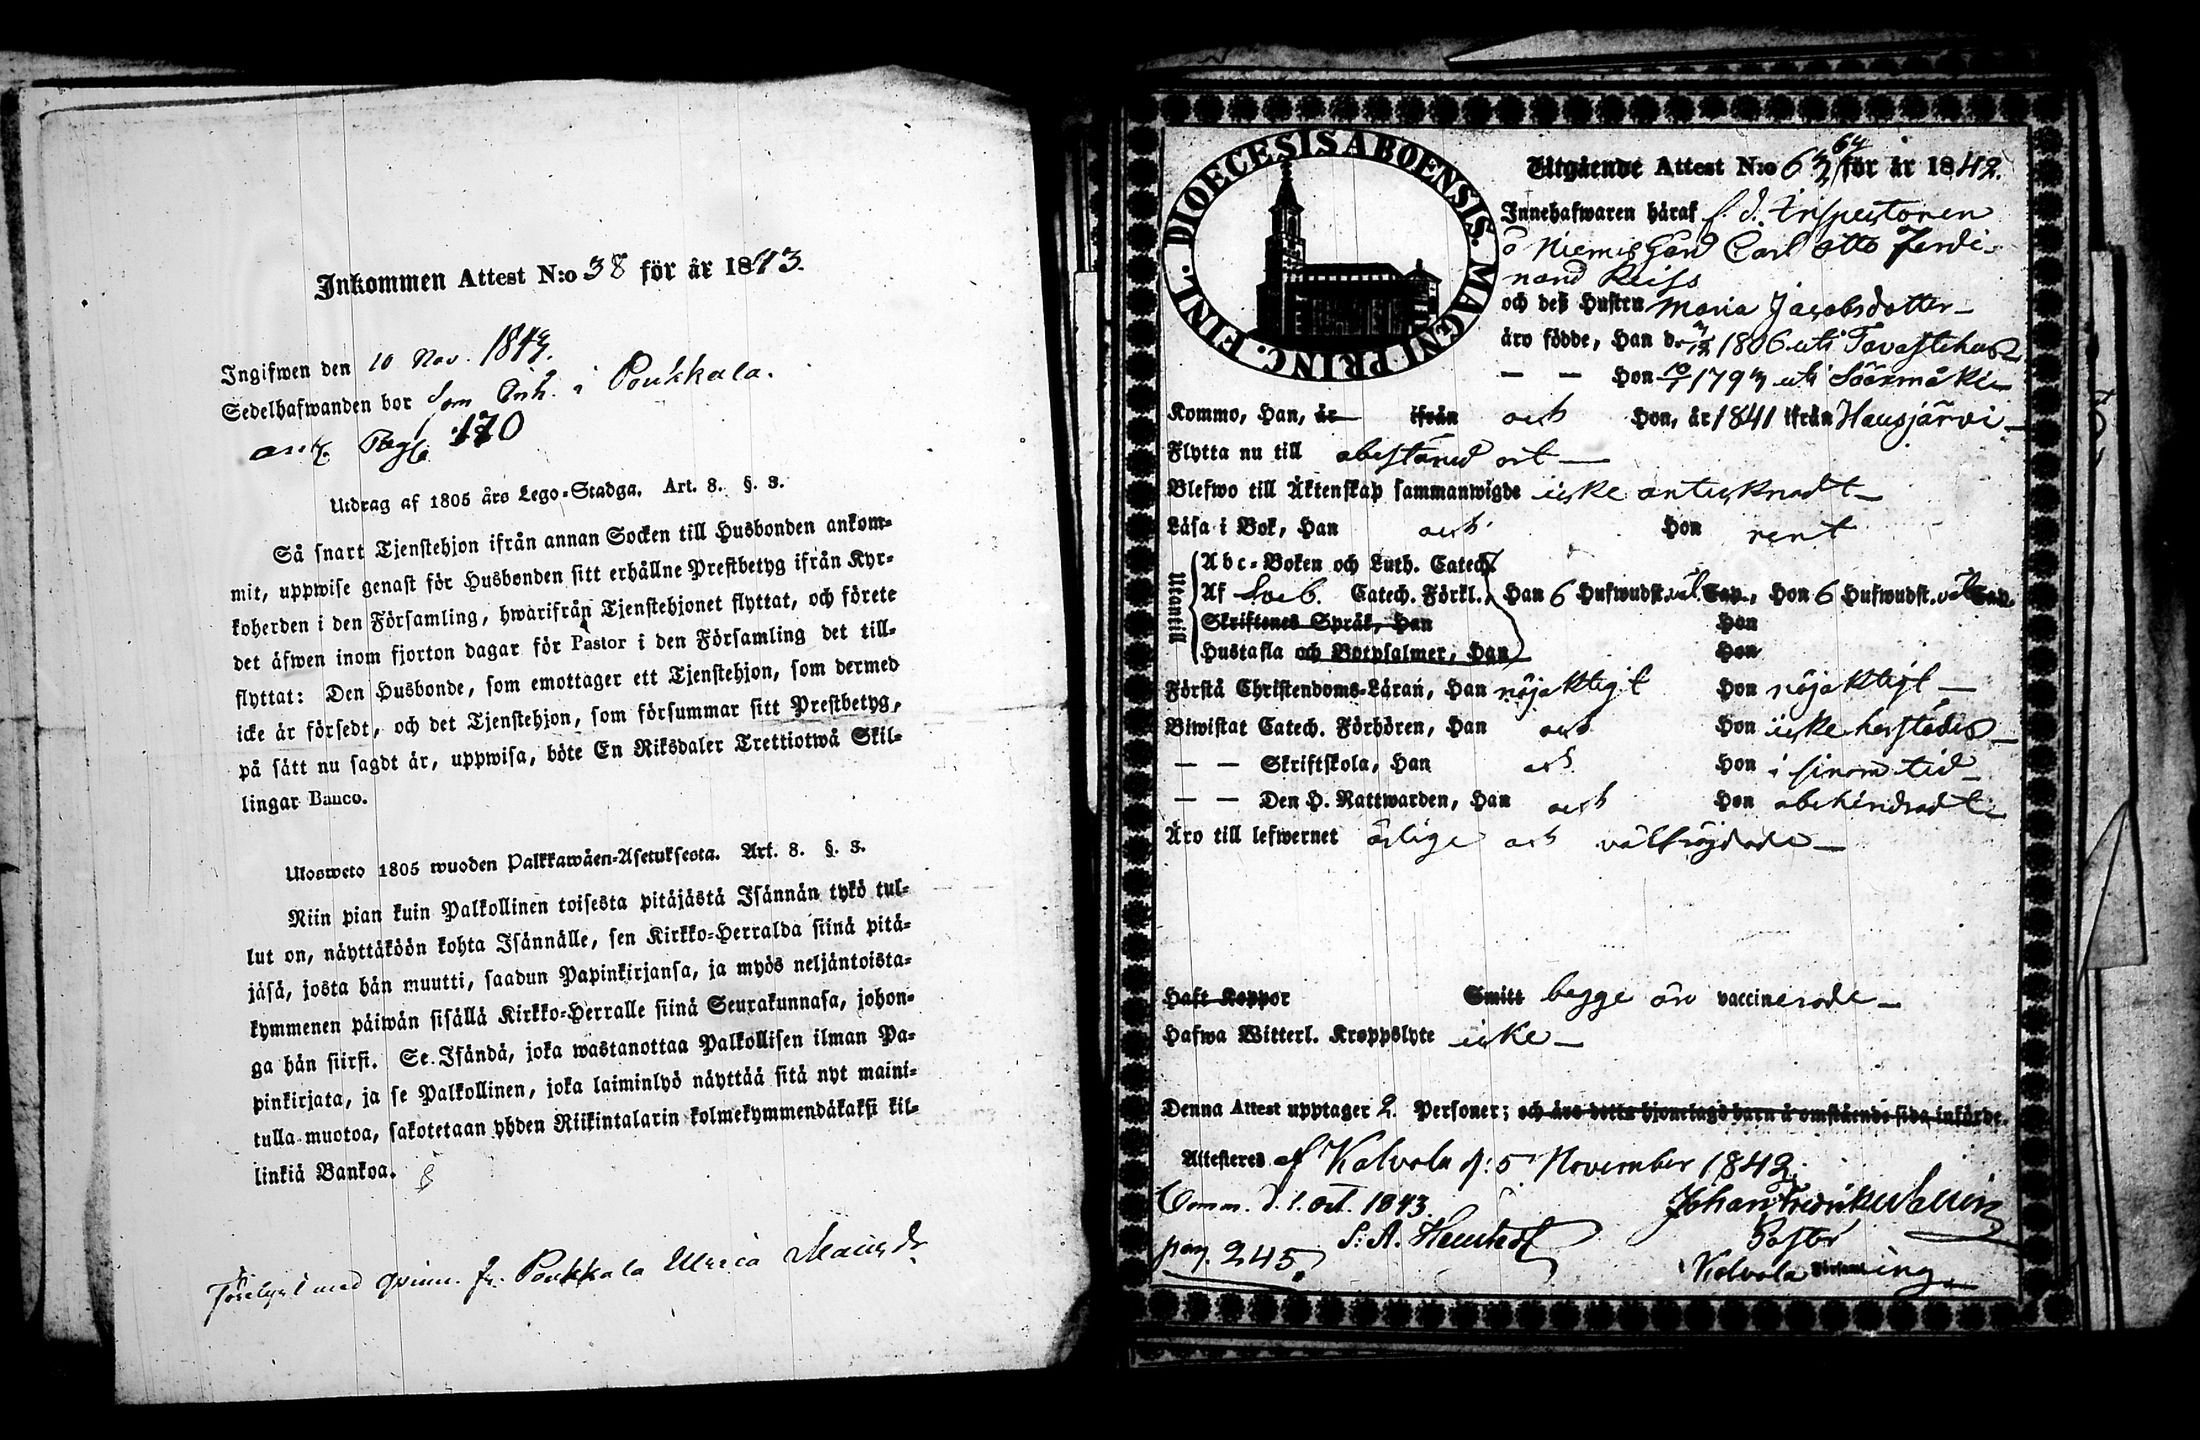 Inkommen Attest N:o 38 för år 1843.
Ingifwen den 10 Nov. 1843.
Sedelhafwanden bor som Enk. i Poukkala.
170
Utdrag af 1805 års Lego-Stadga. Art. 8. §. 3.
Så snart Tjenstehjon ifrån annan Socken till Husbonden ankom-
mit, uppwise genast för Husbonden sitt erhållne Prestbetyg ifrån Kyr-
koherden i den Församling, hwarifrån Tjenstehjonet flyttat, och förete
det äfwen inom fjorton dagar för Pastor i den Församling det till-
flyttat: Den Husbonde, som emottager ett Tjenstehjon, som dermed
icke är försedt, och det Tjenstehjon, som försummar sitt Prestbetyg,
på sätt nu sagdt är, uppwisa, böte En Riksdaler Trettiotwå Skil-
lingar Banco.
Ulosweto 1805 wuoden Palkkawäen-Asetuksesta. Art. 8. §. 3.
Niin pian kuin Palkollinen toisesta pitäjästä Isännän tykö tul-
lut on, näyttäköön kohta Isännälle, sen Kirkko-Herralda siinä pitä-
jäsä, josta hän muutti, saadun Papinkirjansa, ja myös neljäntoista-
kymmenen päiwän sisällä Kirkko-Herralle siinä Seurakunnasa, johon-
ga hän siirsi. Se Isändä, joka wastanottaa Palkollisen ilman Pa-
pinkirjata, ja se Palkollinen, joka laiminlyö näyttää sitä nyt maini-
tulla muotoa, sakotetaan yhden Riikintalarin kolmekymmendäkaksi kil-
linkiä Bankoa.
med qvinn. fr. Poukkala Maria
DIOECESIS ABOENSIS. MAGNI PRINC. FINL.
Utgående Attest N:o 63 64 för år 1842.
Innehafwaren häraf f. d. Inspectoren
å Niemis Gård Carl Otto Ferdi-
nand Reiss
och deß Hustru Maria Jacobsdotter
äro födde, Han d. 2/12 1806 uti Tavastehus
— — Hon 10/1 1793 uti Sääxmäki
Kommo, Han, är ifrån och Hon, år 1841 ifrån Hausjärvi
Flytta nu till obestämd ort
Blefwo till Äktenskap sammanwigde icke antecknadt
Läsa i Bok, Han och Hon rent
Utantill
Abc-Boken och Luth. Catech.
Af Sveb. Catech. Förkl., Han 6 Hufwudst. väl Cap., Hon 6 Hufwudst. väl Cap.
Skriftenes Språk, Han Hon
Hustafla och Botpsalmer, Han Hon
Förstå Christendoms-Läran, Han nöjaktigt Hon nöjaktigt
Biwistat Catech. Förhören, Han och Hon icke härstädes
— — Skriftskola, Han och Hon i sinom tid
— — Den H. Nattwarden, Han och Hon obehindradt
Äro till lefwernet ärlige och välfrejdade
Haft Koppor Smitt begge äro vaccinerade
Hafwa Witterl. Kroppslyte icke
Denna Attest upptager 2. Personer; och äro detta hjonelags barn å omstående sida införde.
Attesteres af Kalvola d: 5 November 1842.
Comm. d. 1. Oct. 1843. Johan Fredrik Wallin
Pastor
pag. 245.
Kalvola